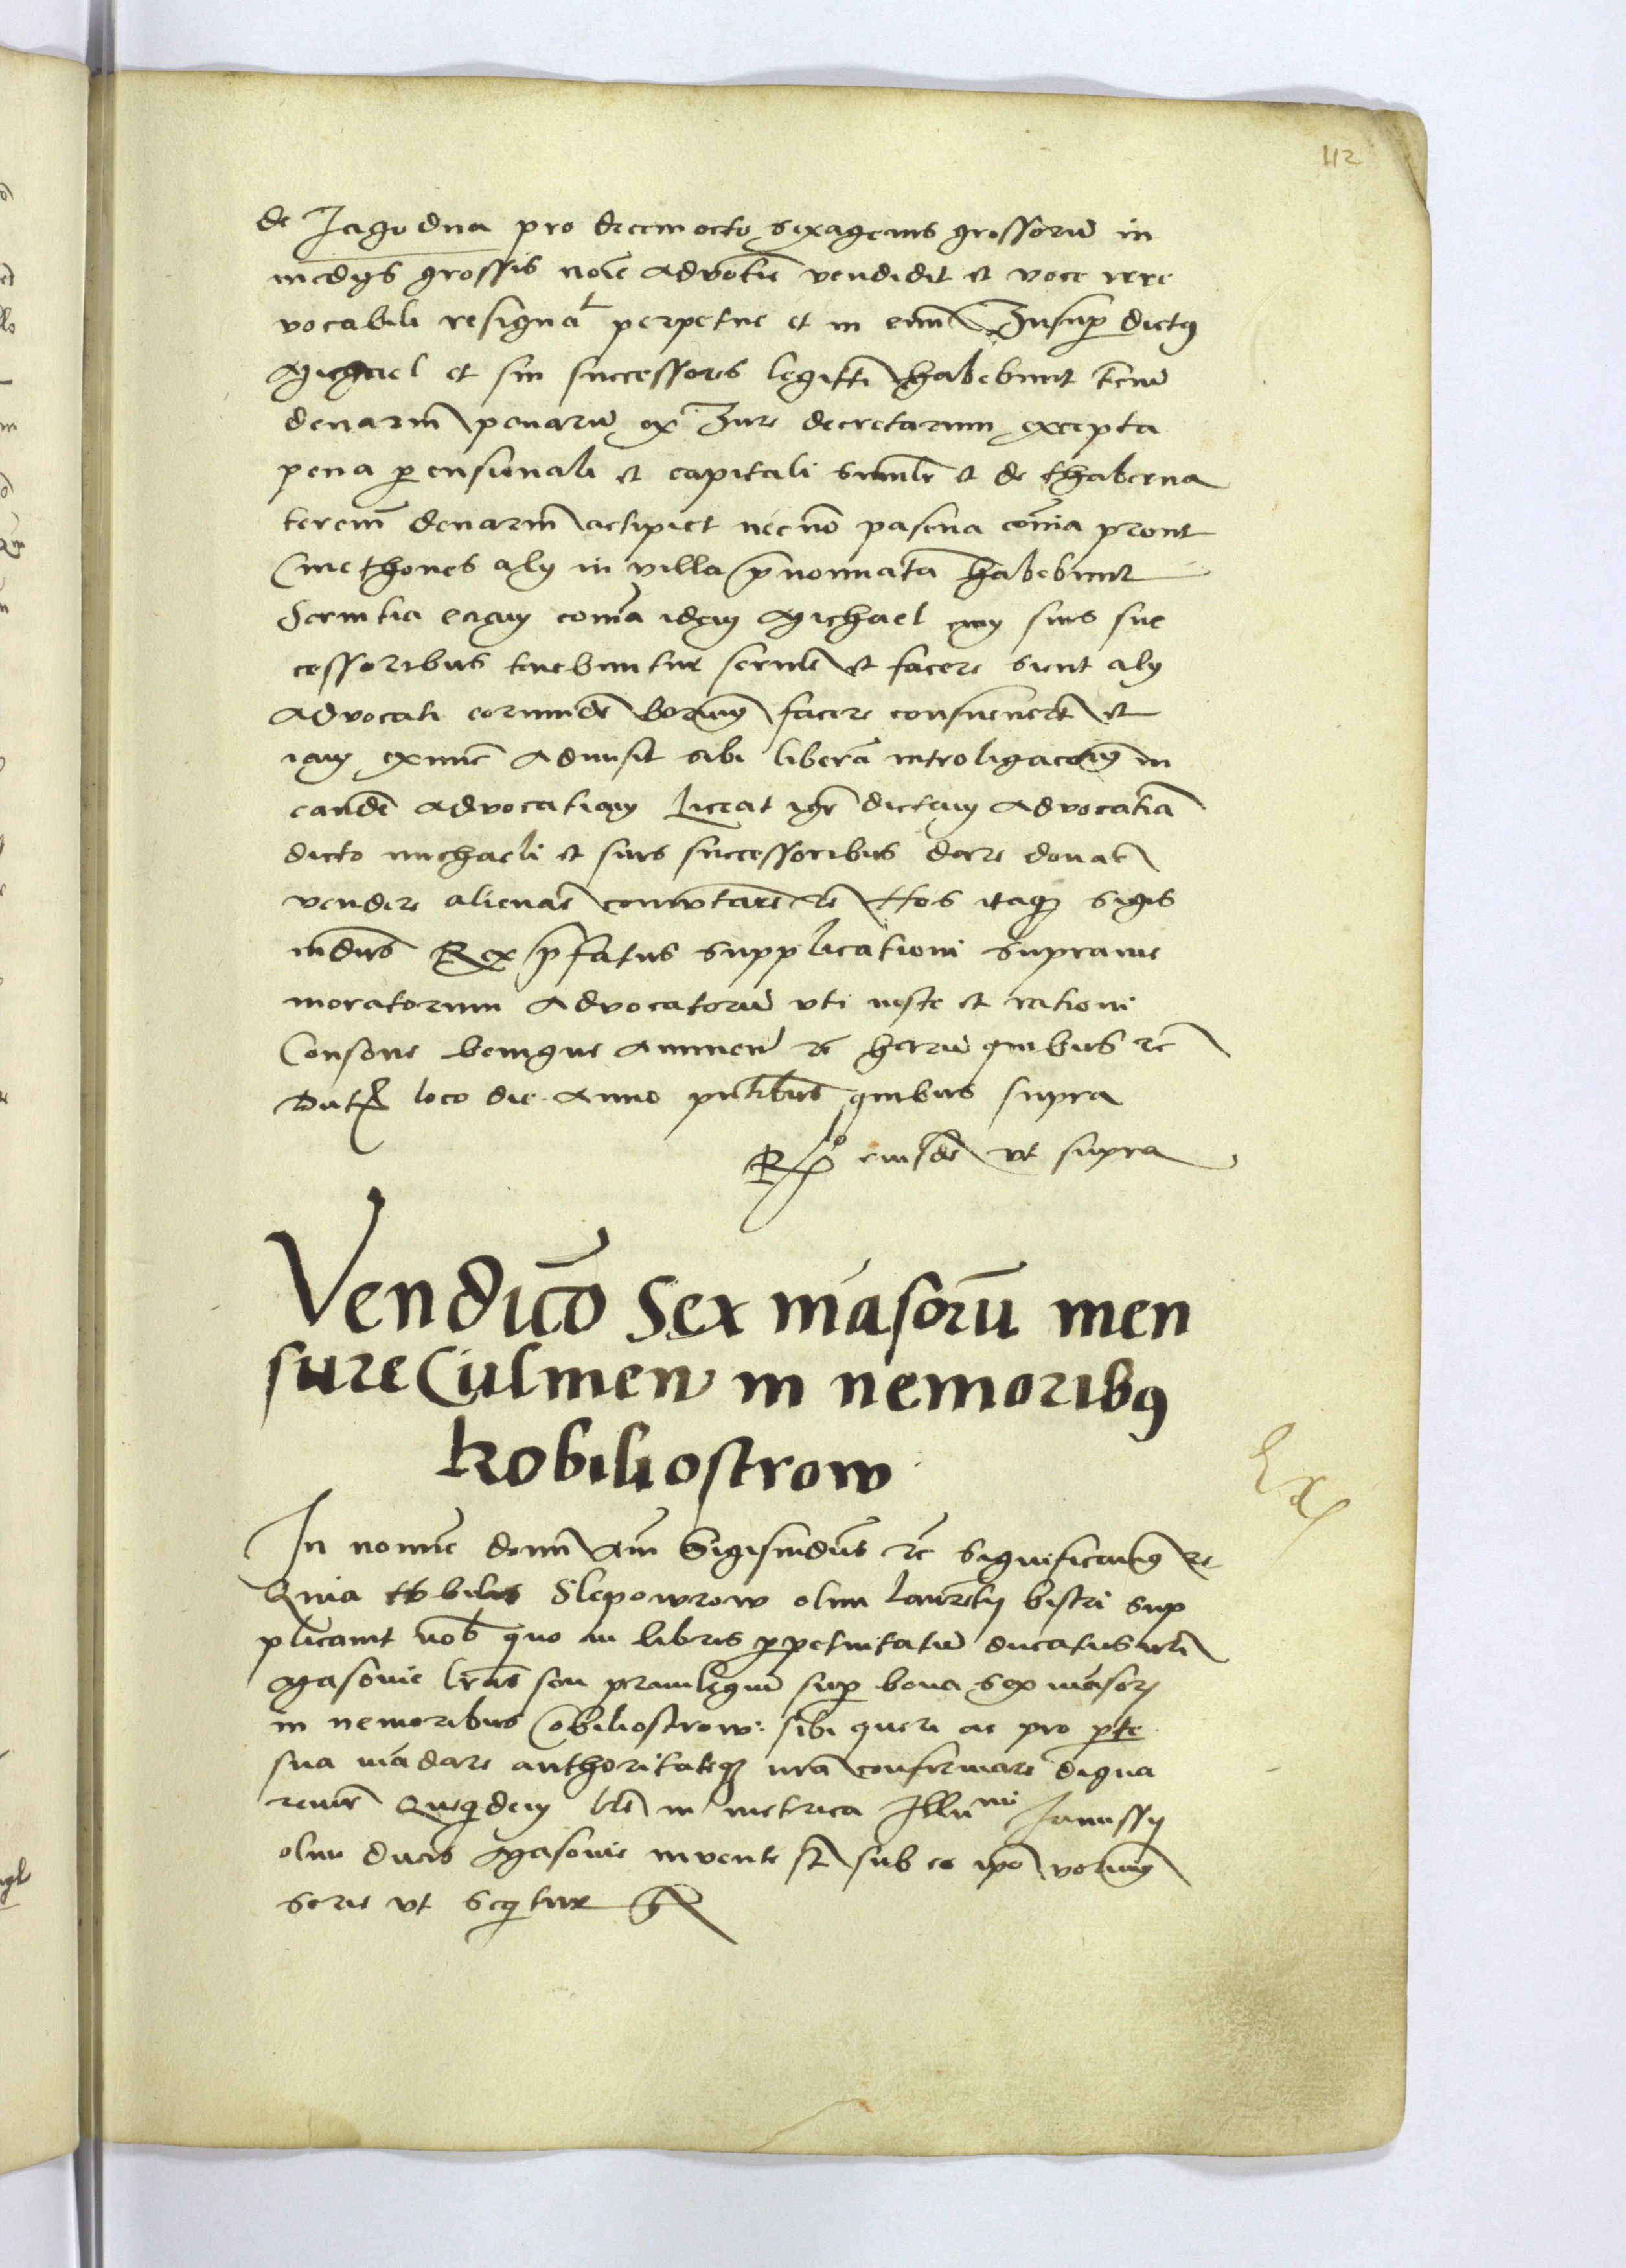 112
de Jagodna pro decemocto sexagenis grossorū in
medys grossis noīe advotīe vendidit et voce irre
vocabili resignāt perpetue et in evū Insuꝑ dictꝰ
Michael et sui successores legitti habebunt terciū
denariū penarū ex Jure decretarum excepta
pena ꝑensionali et capitali similr et de thaberna
terciū denariū accipiet nec nō pascua com̄ia prout
Cmethones aly in villa p̄nominata habebunt
Servitia eciam com̄ia idem Michael cum suis suc
cessoribus tenebuntur servire et facere sicut aly
Advocati eorundē bonorum facere consueverūt et
iam exnunc Admisit sibi liberā introligacionē in
eandē advocatiam Liceat igr̄ dictam Advocatiā
dicto michaeli et suis successoribus dare donare
vendere alienare comutare etc̄ Nos itaqȝ Sigis
mūdus Rex p̄fatus supplicationi suprame
moratorum Advocatorū uti iuste et rationi
Consone benigne annuen̄ etc̄ harū quibus etc̄
Datꝭ loco die Anno pn̄tibus quibus supra
Rᵒ eiusdē ut supra
Vendic̄o Sex māsorū men
sure Culmen in nemoribꝰ
Kobiliostrow
Ex
In nomīe domī Am̄ Sigismūdus etc̄ Significamꝰ etc̄
Quia Nobiles Slepowrow olim Laurētii bistri sup
plicavit nob̄ quo in libris ꝑpetuitatū ducatus nr̄i
Masovie lr̄as seu privilegium suꝑ bona sex māsorꝝ
in nemoribus Cobiliostrow: sibi queri ac pro ꝑte
sua mādare authoritateqȝ nr̄a confirmare digna
remur Quequidem lr̄e in metrica Illumi Janussy
olim ducis Masovie invente st̄ sub eo ipo verborum
serie ut sequitur